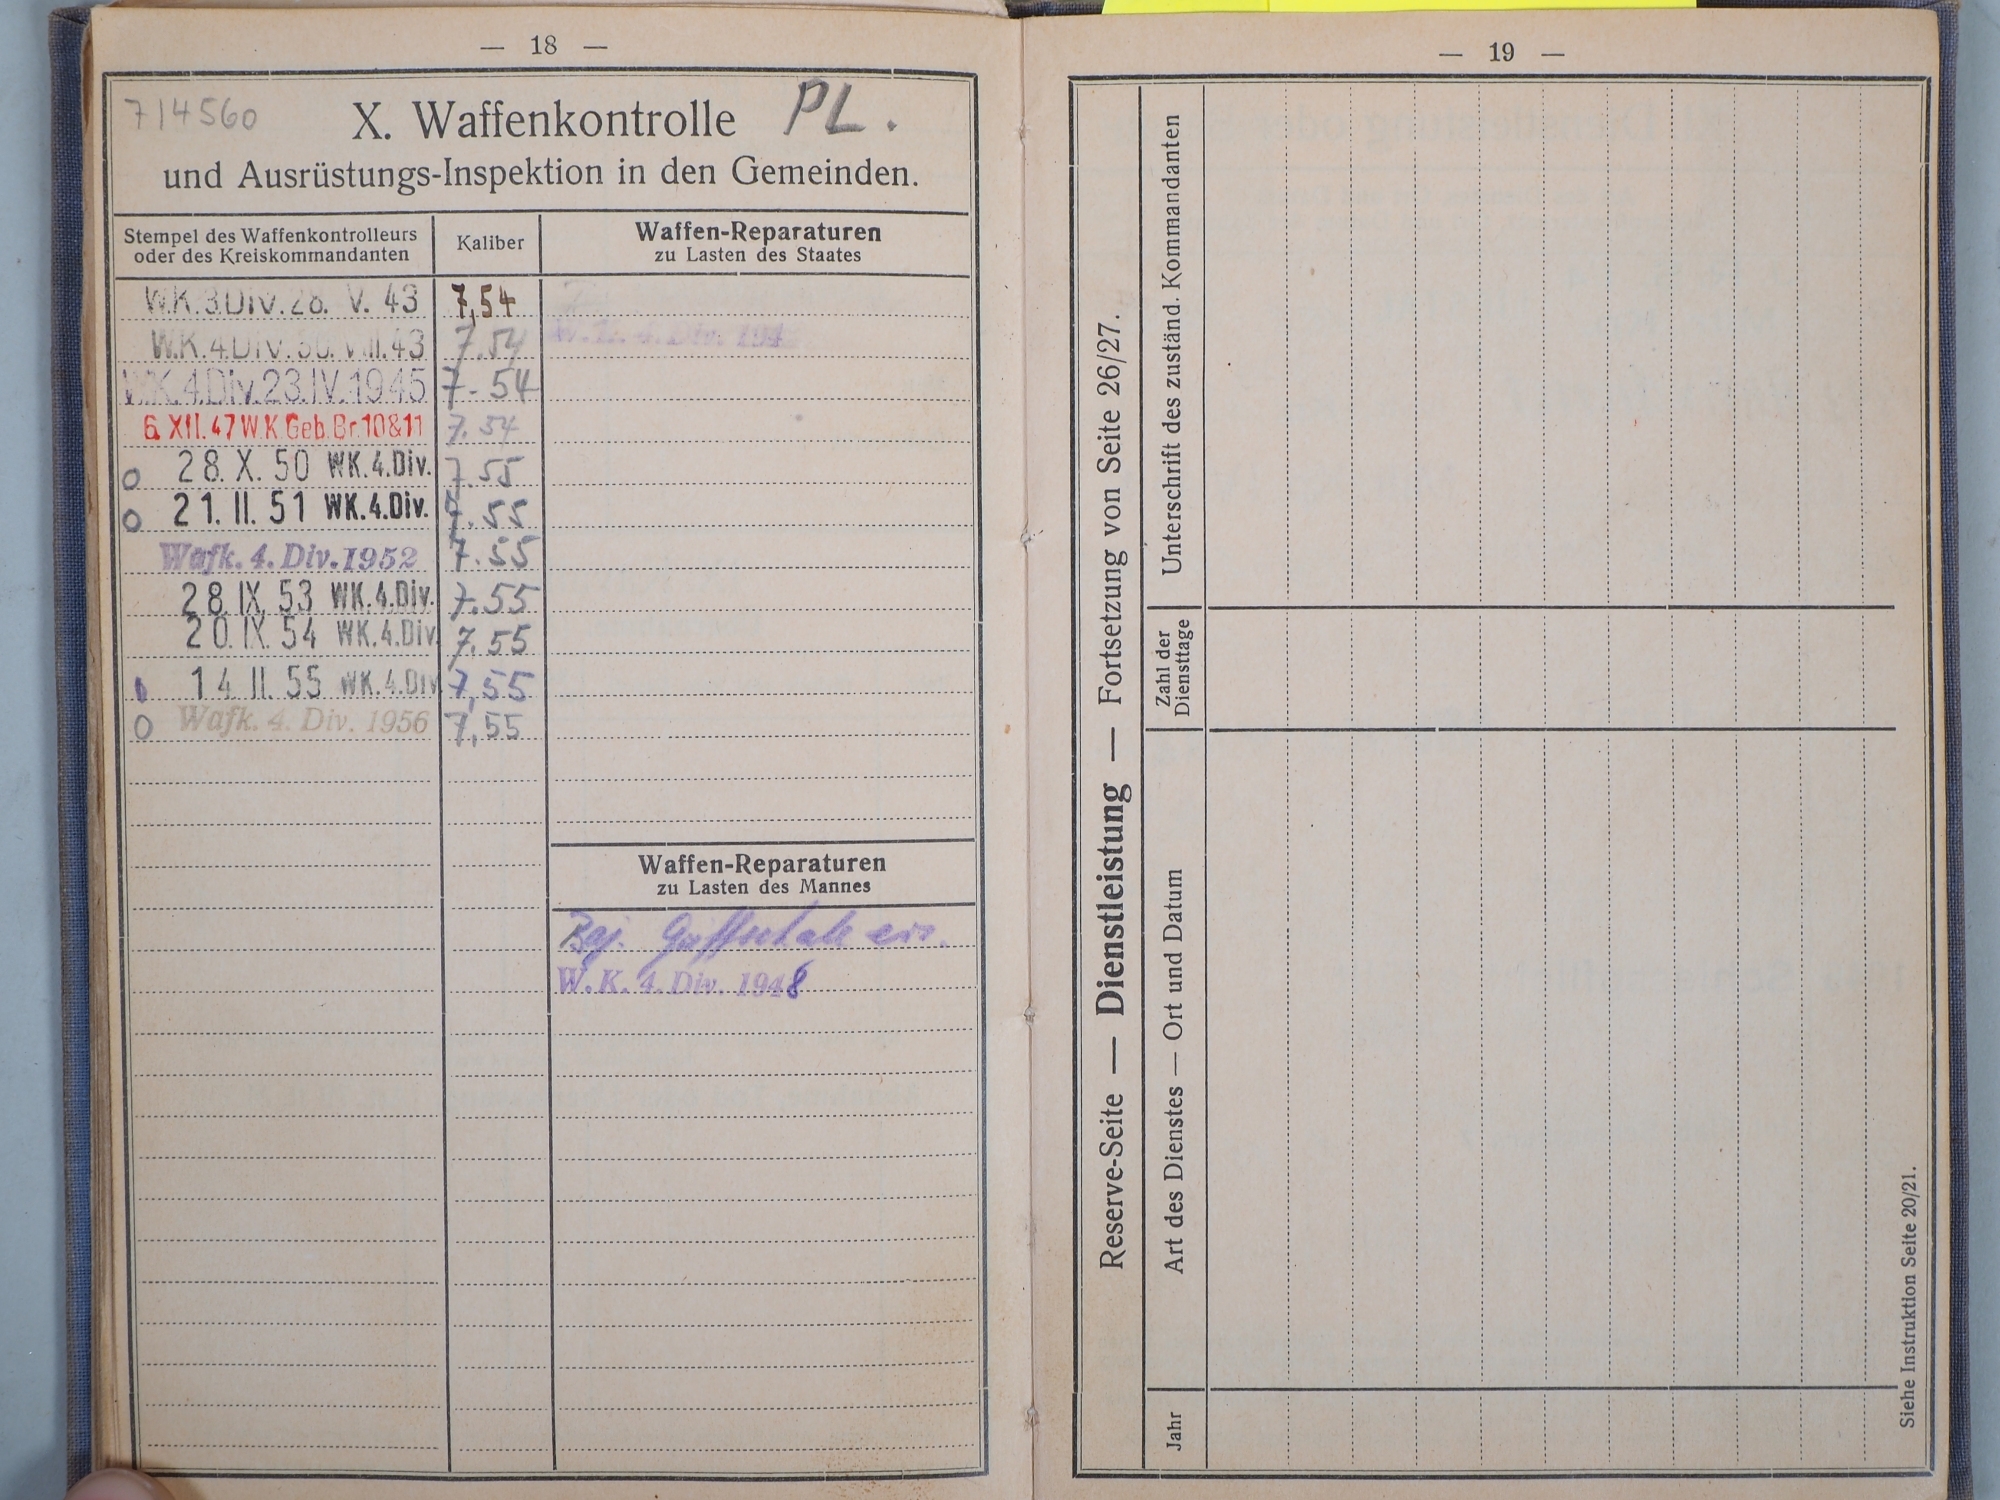 — 18 —
714560
X. Waffenkontrolle PL.
und Ausrüstungs-Inspektion in den Gemeinden.
Stempel des Waffenkontrolleurs
oder des Kreiskommandanten
Kaliber
Waffen-Reparaturen
zu Lasten des Staates
W.K.3.Div.28. V. 43 7,54
W.K.4.Div.30.VIII.43 7.54 W. K. 4. Div. 194
W.K.4.Div.23.IV.1945 7-54
6. XII. 47 W.K.Geb.Br.10&11 7.54
o 28. X. 50 WK.4.Div. 7.55
o 21. II. 51 WK.4.Div. 7.55
Wafk. 4. Div. 1952 7.55
28. IX. 53 WK.4.Div. 7.55
20. IX. 54 WK.4.Div. 7.55
14 II. 55 WK.4.Div 7,55
o Wafk. 4. Div. 1956 7,55
Waffen-Reparaturen
zu Lasten des Mannes
Baj.
W. K. 4. Div. 1948
— 19 —
Reserve-Seite — Dienstleistung — Fortsetzung von Seite 26/27.
Jahr
Art des Dienstes — Ort und Datum
Zahl der
Diensttage
Unterschrift des zuständ. Kommandanten
Siehe Instruktion Seite 20/21.